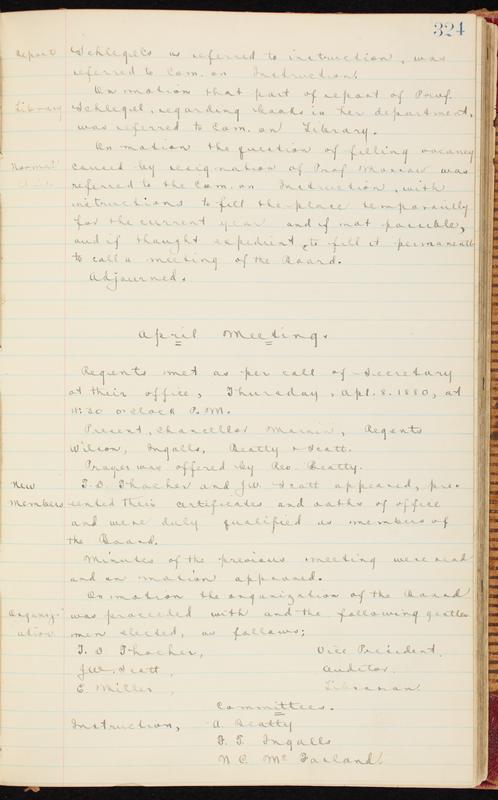 324
Report Schlegel's as referred to instruction, was
referred to Com. on Instruction.
On motion that part of report of Prof.
Library Schlegel, regarding books in her department,
was referred to Com. on Library.
On motion the question of filling vacancy
Normal caused by resignation of Prof Morrow was
referred to the Com. on Instruction, with
instructions to fill the place temporarily
for the current year and if not possible,
and if thought expedient, to fill it permanently
to call a meeting of the Board.
Adjourned.
April Meeting.
Regents met as per call of Secretary
at their office, Thursday, Apl. 8. 1880, at
o'clock P.M.
Present, Chancellor Marvin, Regents
Wilson, Ingalls, Beatty & Scott.
Prayer was offered by Rev. Beatty.
New T.D. Thacher and J.W. Scott appeared, pre-
members sented their certificates and oaths of office
and were duly qualified as members of
the Board.
Minutes of the previous meeting were read
and on motion approved.
On motion the organization of the Board
Organiz- was proceeded with and the following gentle-
ation men elected, as follows;
T. D Thacher, Vice President.
J.W. Scott, Auditor.
E. Miller, Librarian.
Committees.
Instruction, A. Beatty
F. T. Ingalls
N C. McFarland.